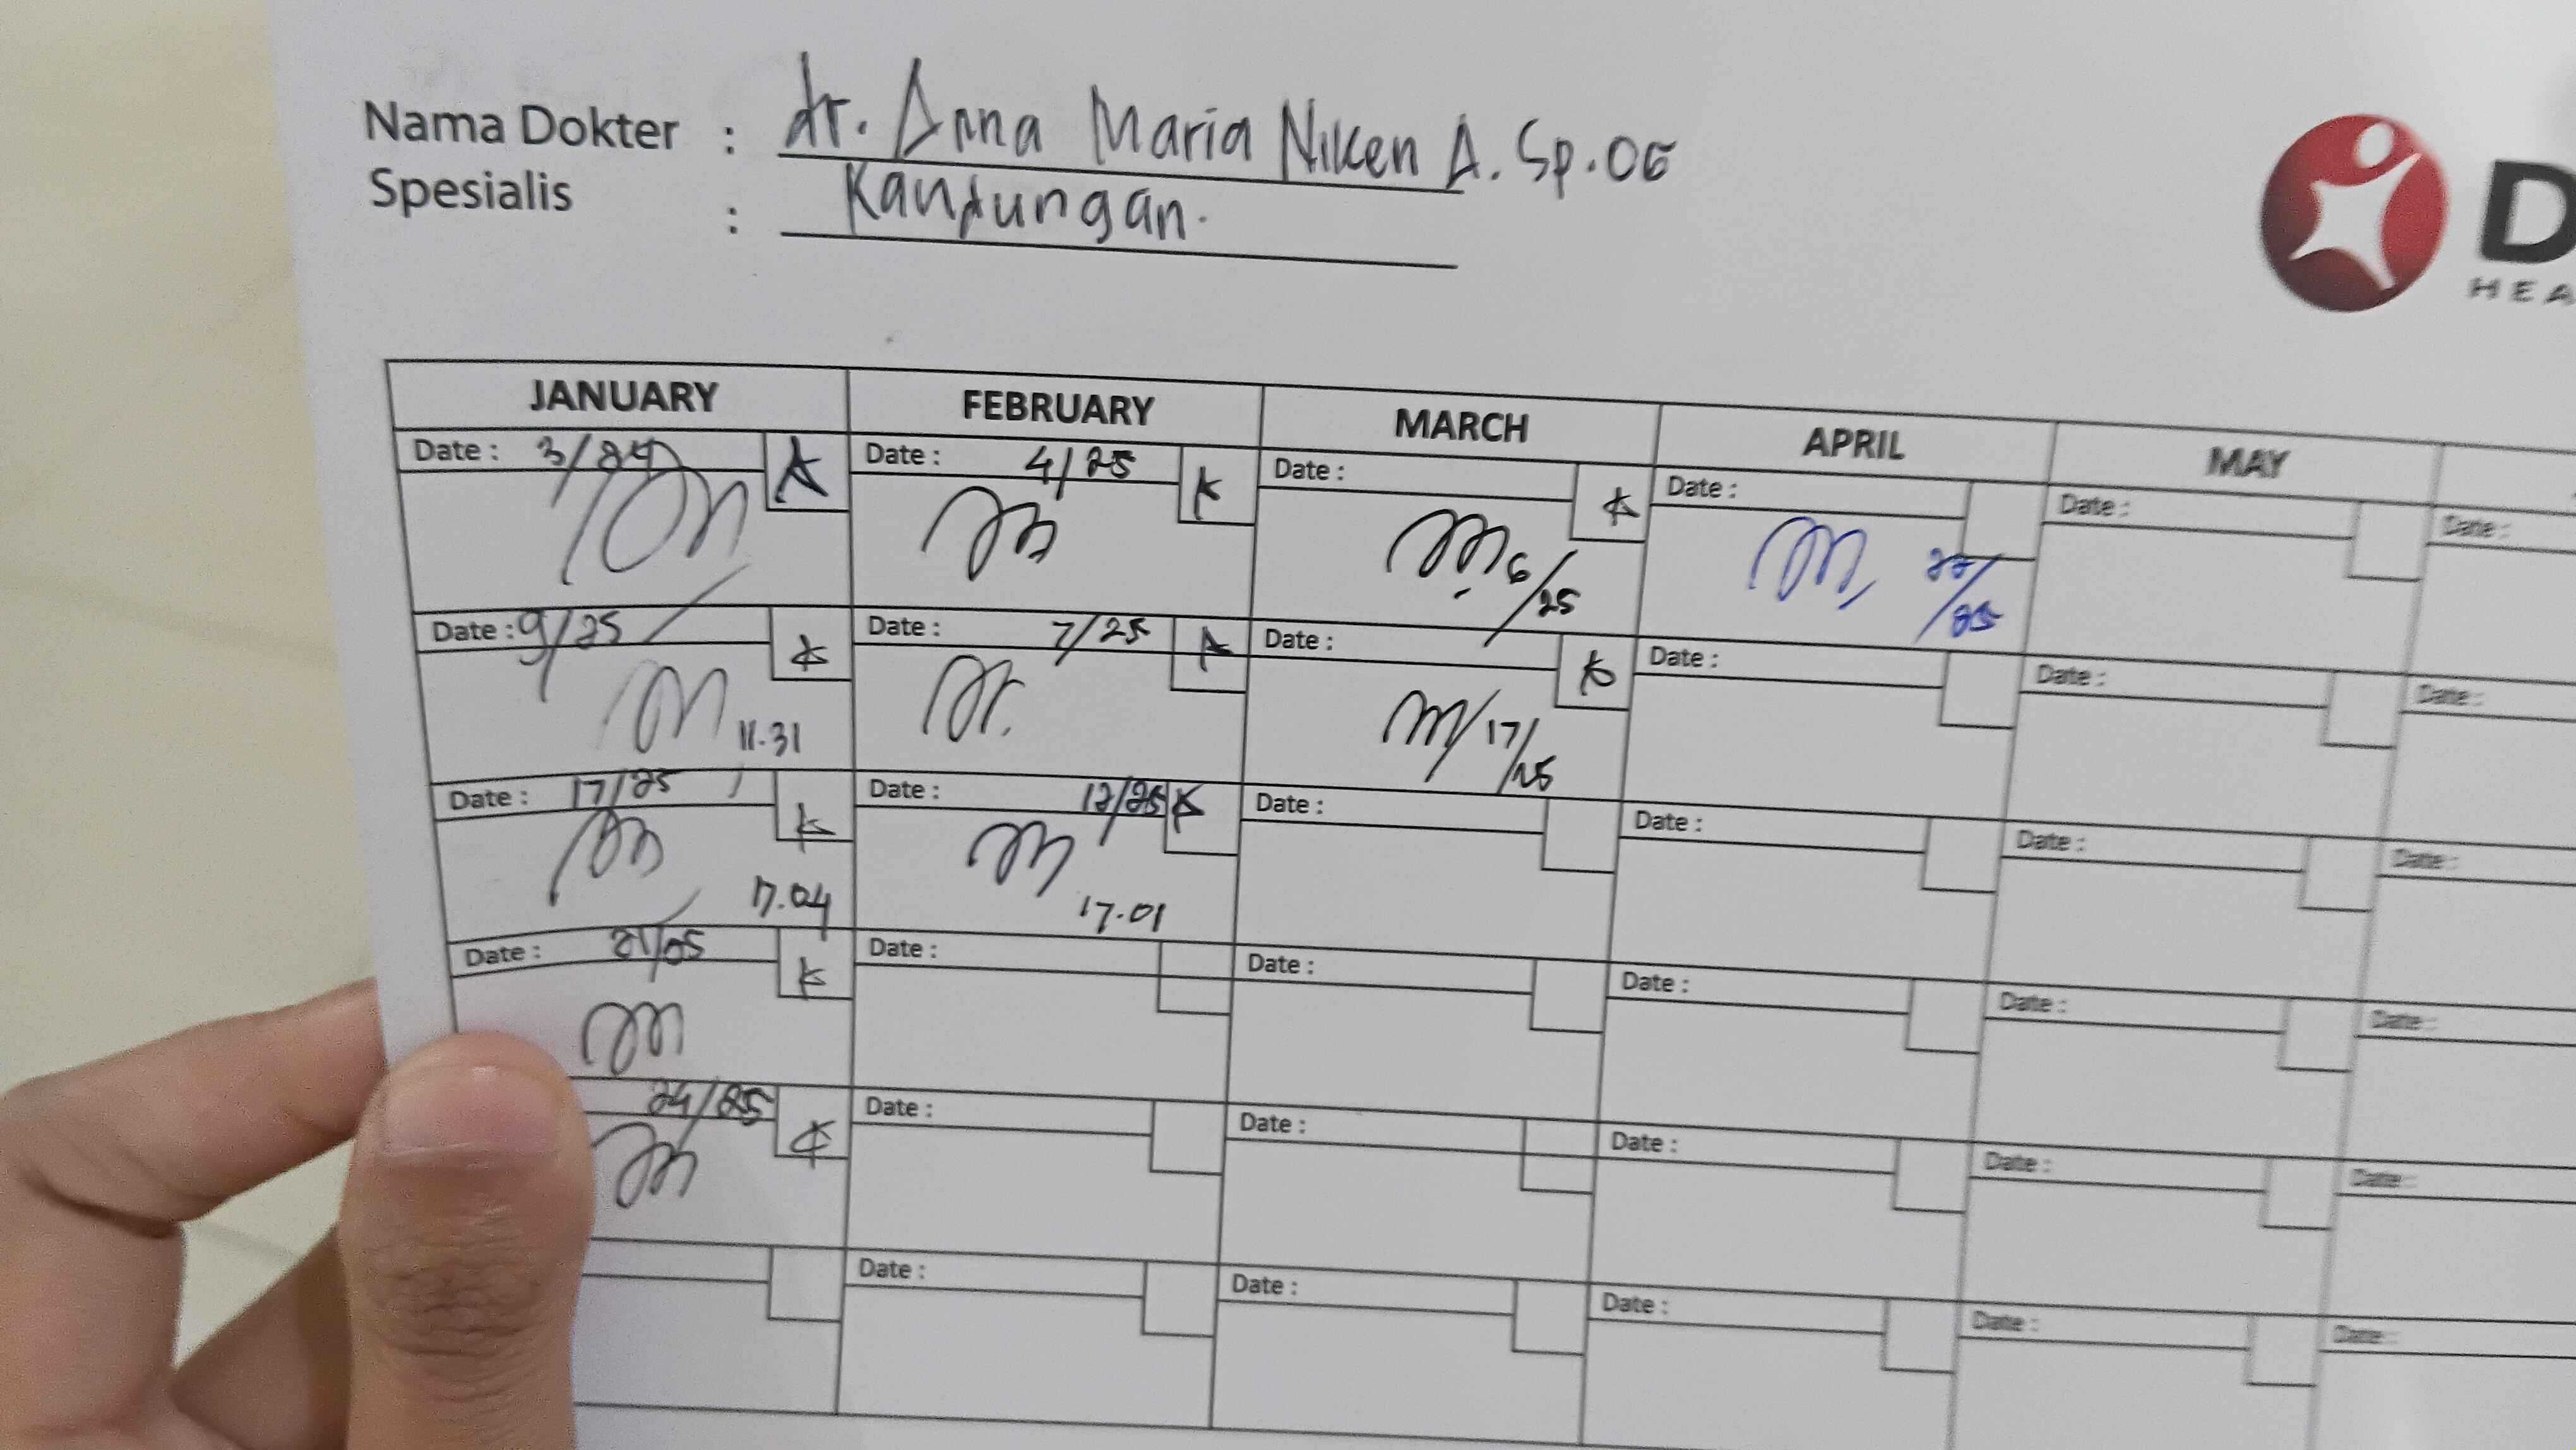 Nama Dokter : dr. Anna Maria Niken A. Sp.OG
Spesialis : Kandungan.
D
HEA
JANUARY FEBRUARY MARCH APRIL MAY
Date : Date : 4/25 Date : Date : Date : Date :
6/25
Date : 9/25 Date : 7/25 Date : Date : Date : Date :
11.31 17/25
Date : 17/25 Date : 12/25 Date : Date : Date : Date :
17.04 17.01
Date : 21/25 Date : Date : Date : Date : Date :
24/25 Date : Date : Date : Date : Date :
Date : Date : Date : Date : Date :